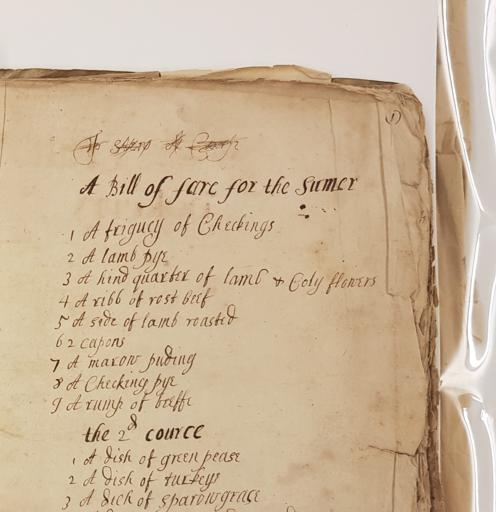 A Bill of fare for the Sumer
1 A friguey of Checkings
2 A lamb pye
3 A hind quarter of lamb & Coly flowers
4 A ribb of rost beef
5 A side of lamb roasted
6 2 capons
7 A marow puding
8 A Checking pye
9 A rump of beffe
the 2d cource
1 A dish of green pease
2 A dish of turkeys
3 A dich of sparowgrace